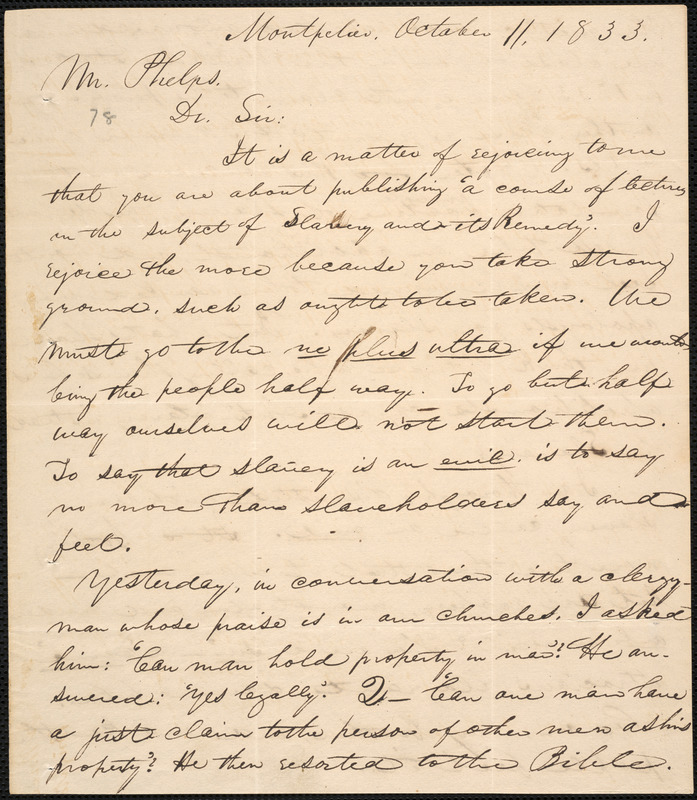 Montpelier, October 11, 1833.
Mr. Phelps.
78
Dr. Sir:
It is a matter of rejoicing to me
that you are about publishing "a course of lectures
on the subject of Slavery and its Remedy". I
rejoice the more because you take strong
ground, such as ought to be taken. We
must go to the ne plus ultra if we would
bring the people half way. To go but half
way ourselves will not start them.
To say that slavery is an evil, is to say
no more than slaveholders say and
feel.
Yesterday, in conversation with a clergy-
man whose praise is in our churches, I asked
him: "Can man hold property in man"? He an-
swered: "Yes legally". Q— "Can one man have
a just claim to the person of other men as his
property"? He then resorted to the Bible.